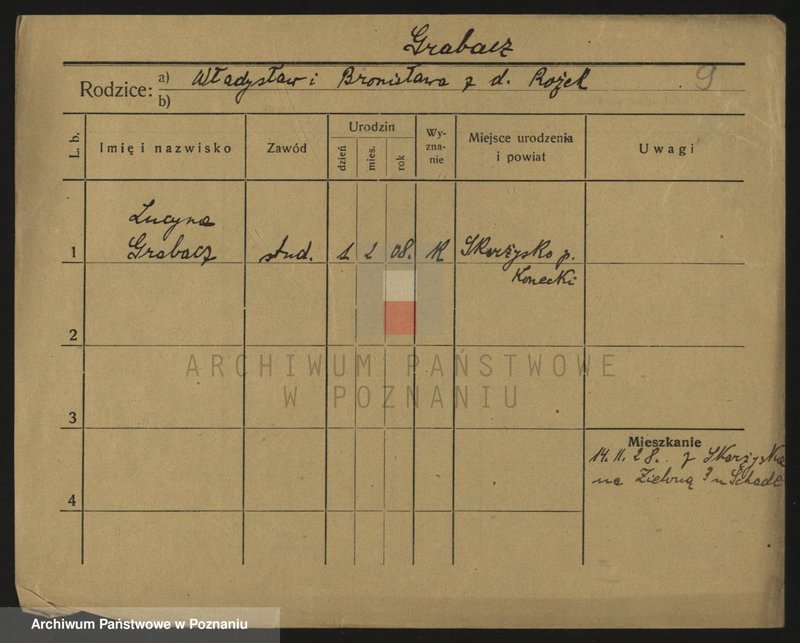 Grabacz
Rodzice: a) Władysław i Bronisława z d. Rożek 9
b)
L. b. Imię i nazwisko Zawód Urodzin dzień mies. rok Wy-zna-nie Miejsce urodzenia i powiat Uwagi
Lucyna
1 Grabacz stud. 1. 2 08. R Skarżysko p.
Konecki
2
ARCHIWUM PAŃSTWOWE
W POZNANIU
3
Mieszkanie
14.11.28. z Skarżyska
na Zieloną 3 u Schade
4
Archiwum Państwowe w Poznaniu